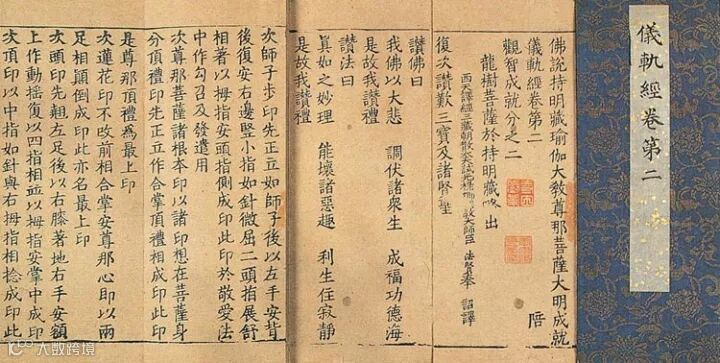 儀軌經卷第二
佛說持明藏瑜伽大教尊那菩薩大明成就
儀軌經卷第二 陪
觀智成就分之二
龍樹菩薩於持明藏略出
西天譯經三藏朝散大夫試光祿卿大師臣法賢奉 詔譯
復次讚歎三寶及諸賢聖
讚佛曰
我佛以大悲 調伏諸衆生 成福功德海
是故我讚禮
讚法曰
真如之妙理 能壞諸惡趣 利生住寂靜
是故我讚禮
次師子步印先正立如師子後以左手安背
後復安右邊豎小指如針微屈二頭指展舒
相著以拇指安頭指側成印此印於敬愛法
中作勾召及發遣用
次尊那菩薩諸根本印以諸印想在菩薩身
分頂禮印先正立作合掌頂禮相成印此
是尊那頂禮為最上印
次蓮花印不改前相合掌安尊那心印以兩
足相顛倒成印此亦名最上印
次頭印先翹左足後以右膝著地右手安額
上作動搖復以四指相並以拇指安掌中成印
次頂印以中指如針與右拇指相捻成印此
大数跨境